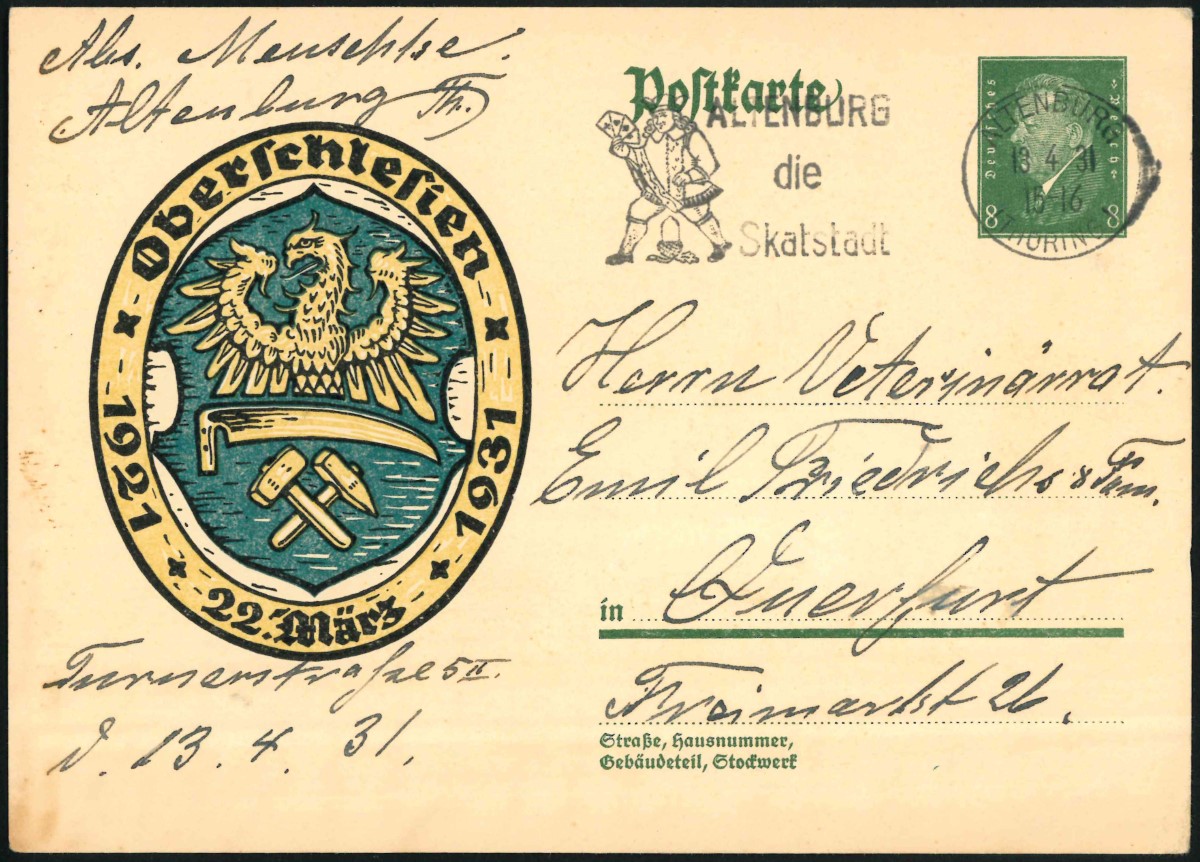 Abs. Meuschke.
Altenburg Th.
Oberschlesien
1921
1931
22. März
Turnerstraße 5 II.
d. 13. 4. 31.
Postkarte
ALTENBURG
die
Skatstadt
Deutsches Reich
8 8
ALTENBURG
13 4 31
15-16
THÜRING
Herrn Veterinärrat.
Emil Friedrichs & Fam.
in Querfurt
Freimarkt 26.
Straße, Hausnummer,
Gebäudeteil, Stockwerk